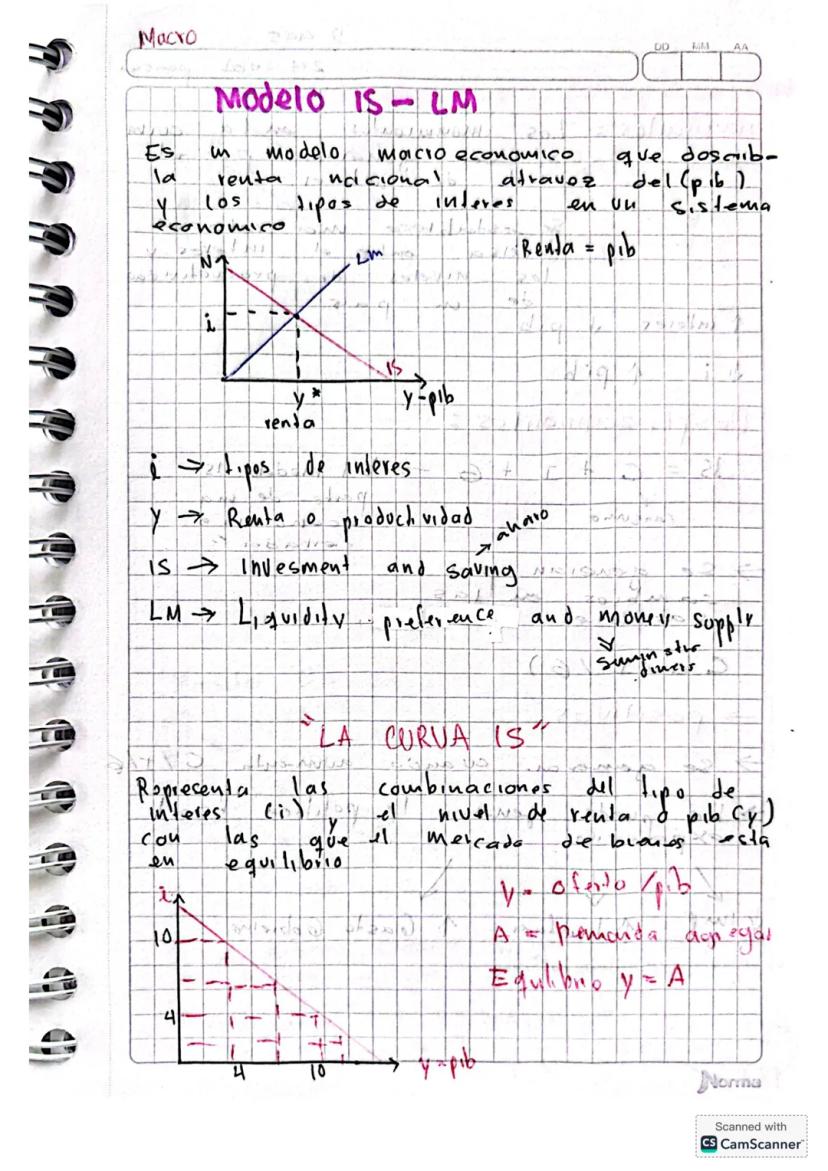 Macro
DD MM AA
Modelo IS - LM
Es un modelo macroeconomico que describ-
la renta nacional atravez del (pib)
y los tipos de interes en un sistema
economico
Renta = pib
N
LM
i
IS
y*
y-pib
renta
i → tipos de interes
Y → Renta o productividad
ahorro
IS → Invesment and saving
LM → Liquidity preference and money supply
"LA CURVA IS"
Representa las combinaciones del tipo de
interes (i) y el nivel de renta o pib (y)
con las que el mercado de bienes esta
en equilibrio
i
y = oferta /pib
10
A = Demanda agregad
Equlibrio y = A
4
4 10
y=pib
Norma
Scanned with
CS CamScanner